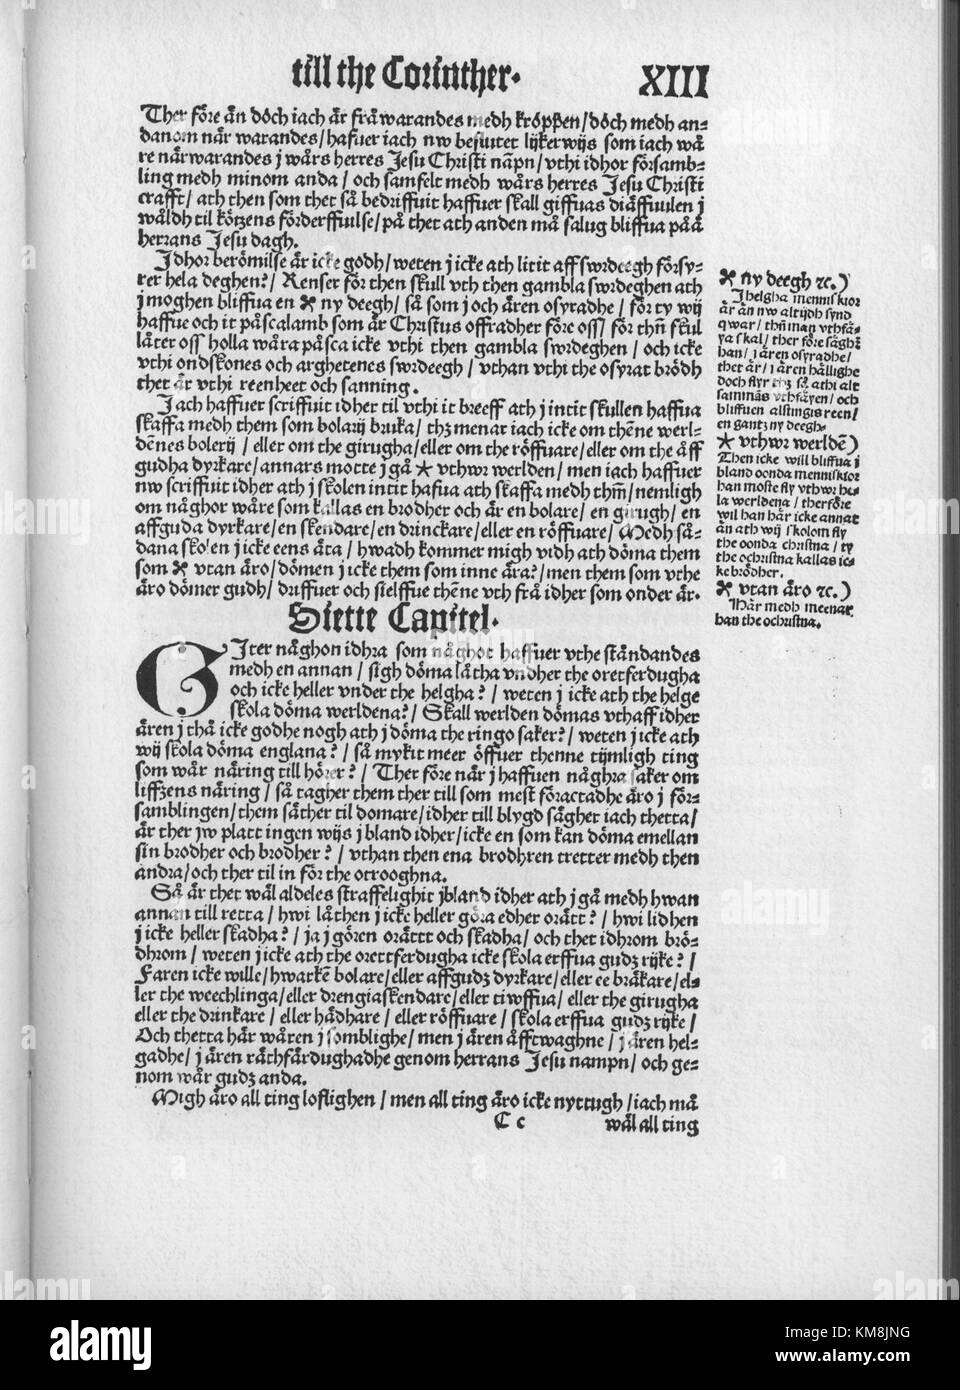 till the Corinther.
XIII
Ther före än döch iach är fråwarandes medh kroppen/döch medh an-
danom när warandes/hafuer iach nw beslutet lijkerwijs som iach wä
re närwarandes j wårs herres Jesu Christi nåpn/vthi idhor församb-
ling medh minom anda/ och samfelt medh wårs herres Jesu Christi
crafft/ ath then som thet så bedriffuit haffuer skall giffuas diäffuulen j
wåldh til kötzens förderffuilse/på thet ath anden må salug bliffua påå
herrans Jesu dagh.
Idhor berömilse är icke godh/weten j icke ath litit aff swrdeegh försy-
rer hela deghen?/ Renser för then skull vth then gambla swrdeghen ath
j moghen bliffua en ※ ny deegh/ så som j och ären osyradhe/ för ty wij
haffue och it påscalamb som är Christus offradher före oss/ för thñ skul
låter oss holla wåra påsca icke vthi then gambla swrdeghen/ och icke
vthi ondskones och arghetenes swrdeegh/ vthan vthi the osyrat brödh
thet är vthi reenheet och sanning.
Jach haffuer scriffuit idher til vthi it breeff ath j intit skullen haffua
skaffa medh them som bolarij bruka/ thz menar iach icke om thēne werl-
dēnes bolerij/ eller om the girugha/eller om the röffuare/ eller om the åff
gudha dyrkare/annars motte j gå ★ vthwr werlden/ men iach haffuer
nw scriffuit idher ath j skolen intit hafua ath skaffa medh thm̄/nemligh
om någhor wåre som kallas en brodher och är en bolare/ en girugh/ en
affguda dyrkare/en skendare/en drinckare/eller en röffuare/ Medh så-
dana skolen j icke eens äta/ hwadh kommer migh vidh ath döma them
som ※ vtan äro/dömen j icke them som inne ära?/men them som vthe
äro dömer gudh/ driffuer och sielffue thēne vth frå idher som onder är.
※ ny deegh ꝛc.)
J helgha menniskior
är än nw altijdh synd
qwar/ thñ man vthfä-
ya skal/ ther före säghē
han/ j ären osyradhe/
thet är/ j ären hällighe
doch flyr thz så athi alt
sammās vthfäyen/ och
bliffuen alsingis reen/
en gantz ny deegh.
★ vthwr werldē)
Then icke will bliffua j
bland oonda menniskior
han moste fly vthwr he-
la werldena/ therföre
wil han här icke annat
än ath wij skolom fly
the oonda christna/ ty
the ochristna kallas ic-
ke brödher.
※ vtan äro ꝛc.)
Thår medh meenar
han the ochristna.
Siette Capitel.
GJter någhon idhra som någhot haffuer vthe ståndandes
medh en annan/ sigh döma låtha vndher the oretferdugha
och icke heller vnder the helgha?/ weten j icke ath the helge
skola döma werldena?/ Skall werlden dömas vthaff idher
ären j thå icke godhe nogh ath j döma the ringo saker?/ weten j icke ath
wij skola döma englana?/ så mykit meer öffuer thenne tijmligh ting
som wår näring till hörer?/ Ther före när j haffuen någhra saker om
liffzens näring/ så tagher them ther till som mest föractadhe äro j för-
samblingen/them säther til domare/idher till blygd sägher iach thetta/
är ther jw platt ingen wijs j bland idher/icke en som kan döma emellan
sin brodher och brodher?/ vthan then ena brodhren tretter medh then
andra/och ther til in för the otrooghna.
Så är thet wäl aldeles straffelighit jbland idher ath j gå medh hwan
annan till retta/ hwi låthen j icke heller göra edher orätt?/ hwi lidhen
j icke heller skadha?/ ja j gören orättt och skadha/ och thet idhrom brö-
dhrom/ weten j icke ath the orettferdugha icke skola erffua gudz rijke?/
Faren icke wille/hwarkē bolare/eller affgudz dyrkare/eller ee bråkare/el-
ler the weechlinga/eller drengiaskendare/eller tiwffua/ eller the girugha
eller the drinkare/ eller hädhare/ eller röffuare/ skola erffua gudz rijke/
Och thetta här wåren j somblighe/ men j ären åfftwaghne/ j ären hel-
gadhe/ j ären råthfärdughadhe genom herrans Jesu nampn/ och ge-
nom wår gudz anda.
Migh äro all ting loflighen/ men all ting äro icke nyttugh/iach må
C c
wäl all ting
alamy
KM8JNG
www.alamy.com